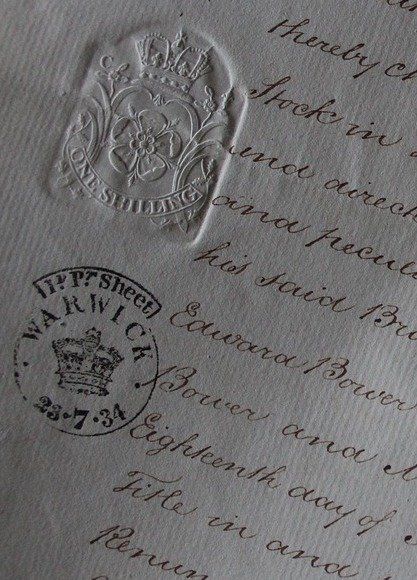 thereby
Stock in
and direct
ONE SHILLING
and pecul
his said Br
Pr. Pr. Sheet
WARWICK
23·7·34
Edward Bower
Bower and
Eighteenth day of
Title in and
Renun